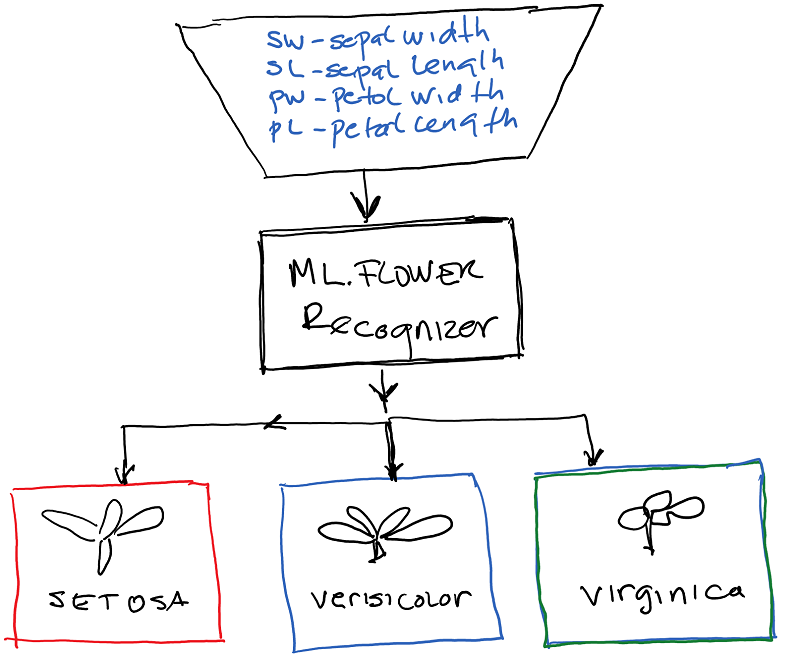 SW - sepal width
SL - sepal Length
PW - petol width
PL - petal Length
ML.FLOWER
Recognizer
SETOSA
Verisicolor
Virginica